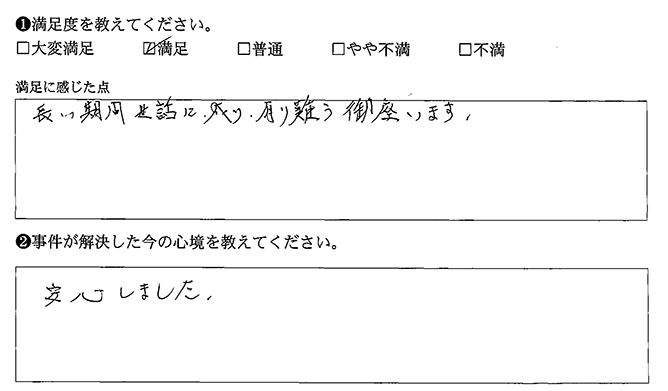 ❶満足度を教えてください。
☐大変満足 ☑満足 ☐普通 ☐やや不満 ☐不満
満足に感じた点
長い期間世話に成り、有り難う御座います。
❷事件が解決した今の心境を教えてください。
安心しました。